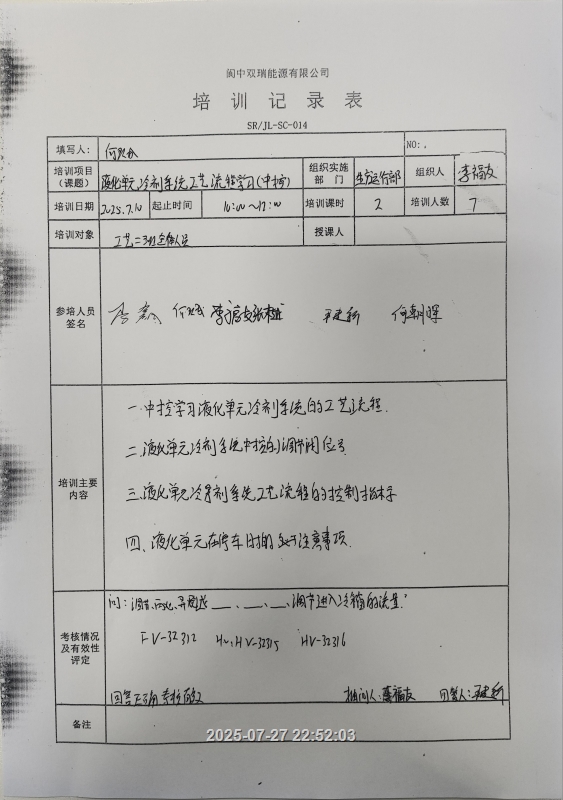 阆中双瑞能源有限公司
培训记录表
SR/JL-SC-014
填写人: NO:.
培训项目(课题) 液化单元冷剂系统工艺流程学习(中控) 组织实施部门 生产运行部 组织人 李福友
培训日期 2025.7.10 起止时间 16:00~17:00 培训课时 2 培训人数 7
培训对象 工艺二班全体人员 授课人
参培人员签名 何朝晖
培训主要内容
一.中控学习液化单元冷剂系统的工艺流程.
二.液化单元冷剂系统中控的调节阀位号
三.液化单元冷剂系统工艺流程的控制指标
四、液化单元在停车时的注意事项.
考核情况及有效性评定
问: 调节 ___、___、___、调节进入冷箱的流量.
FV-32312 HV-32315 HV-32316
回答正确 提问人: 李福友 回答人:
备注
2025-07-27 22:52:03